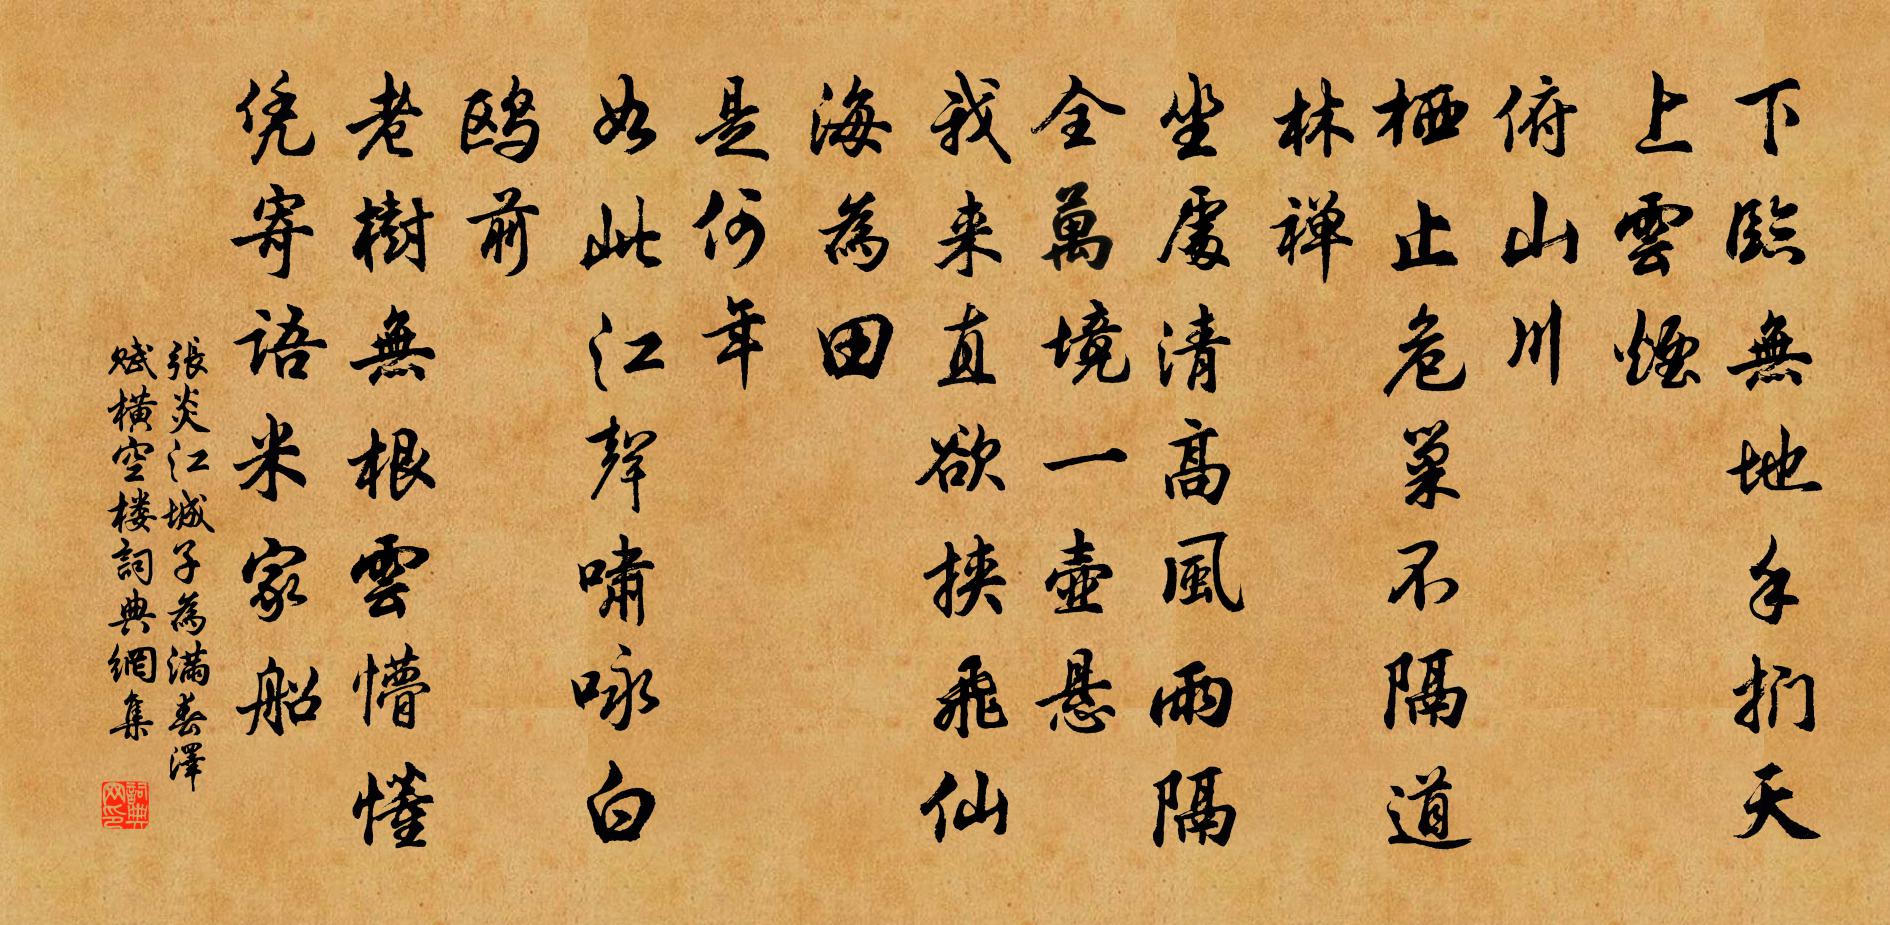 下臨無地手捫天
上雲煙
俯山川
栖止危巢不隔道
林禅
坐處清高風雨隔
全萬境一壺懸
我来直欲挟飛仙
海為田
是何年
如此江聲嘯咏白
鸥前
老樹無根雲懵懂
凭寄語米家船
張炎江城子為满春澤
赋横空楼詞典網集
詞典
网印